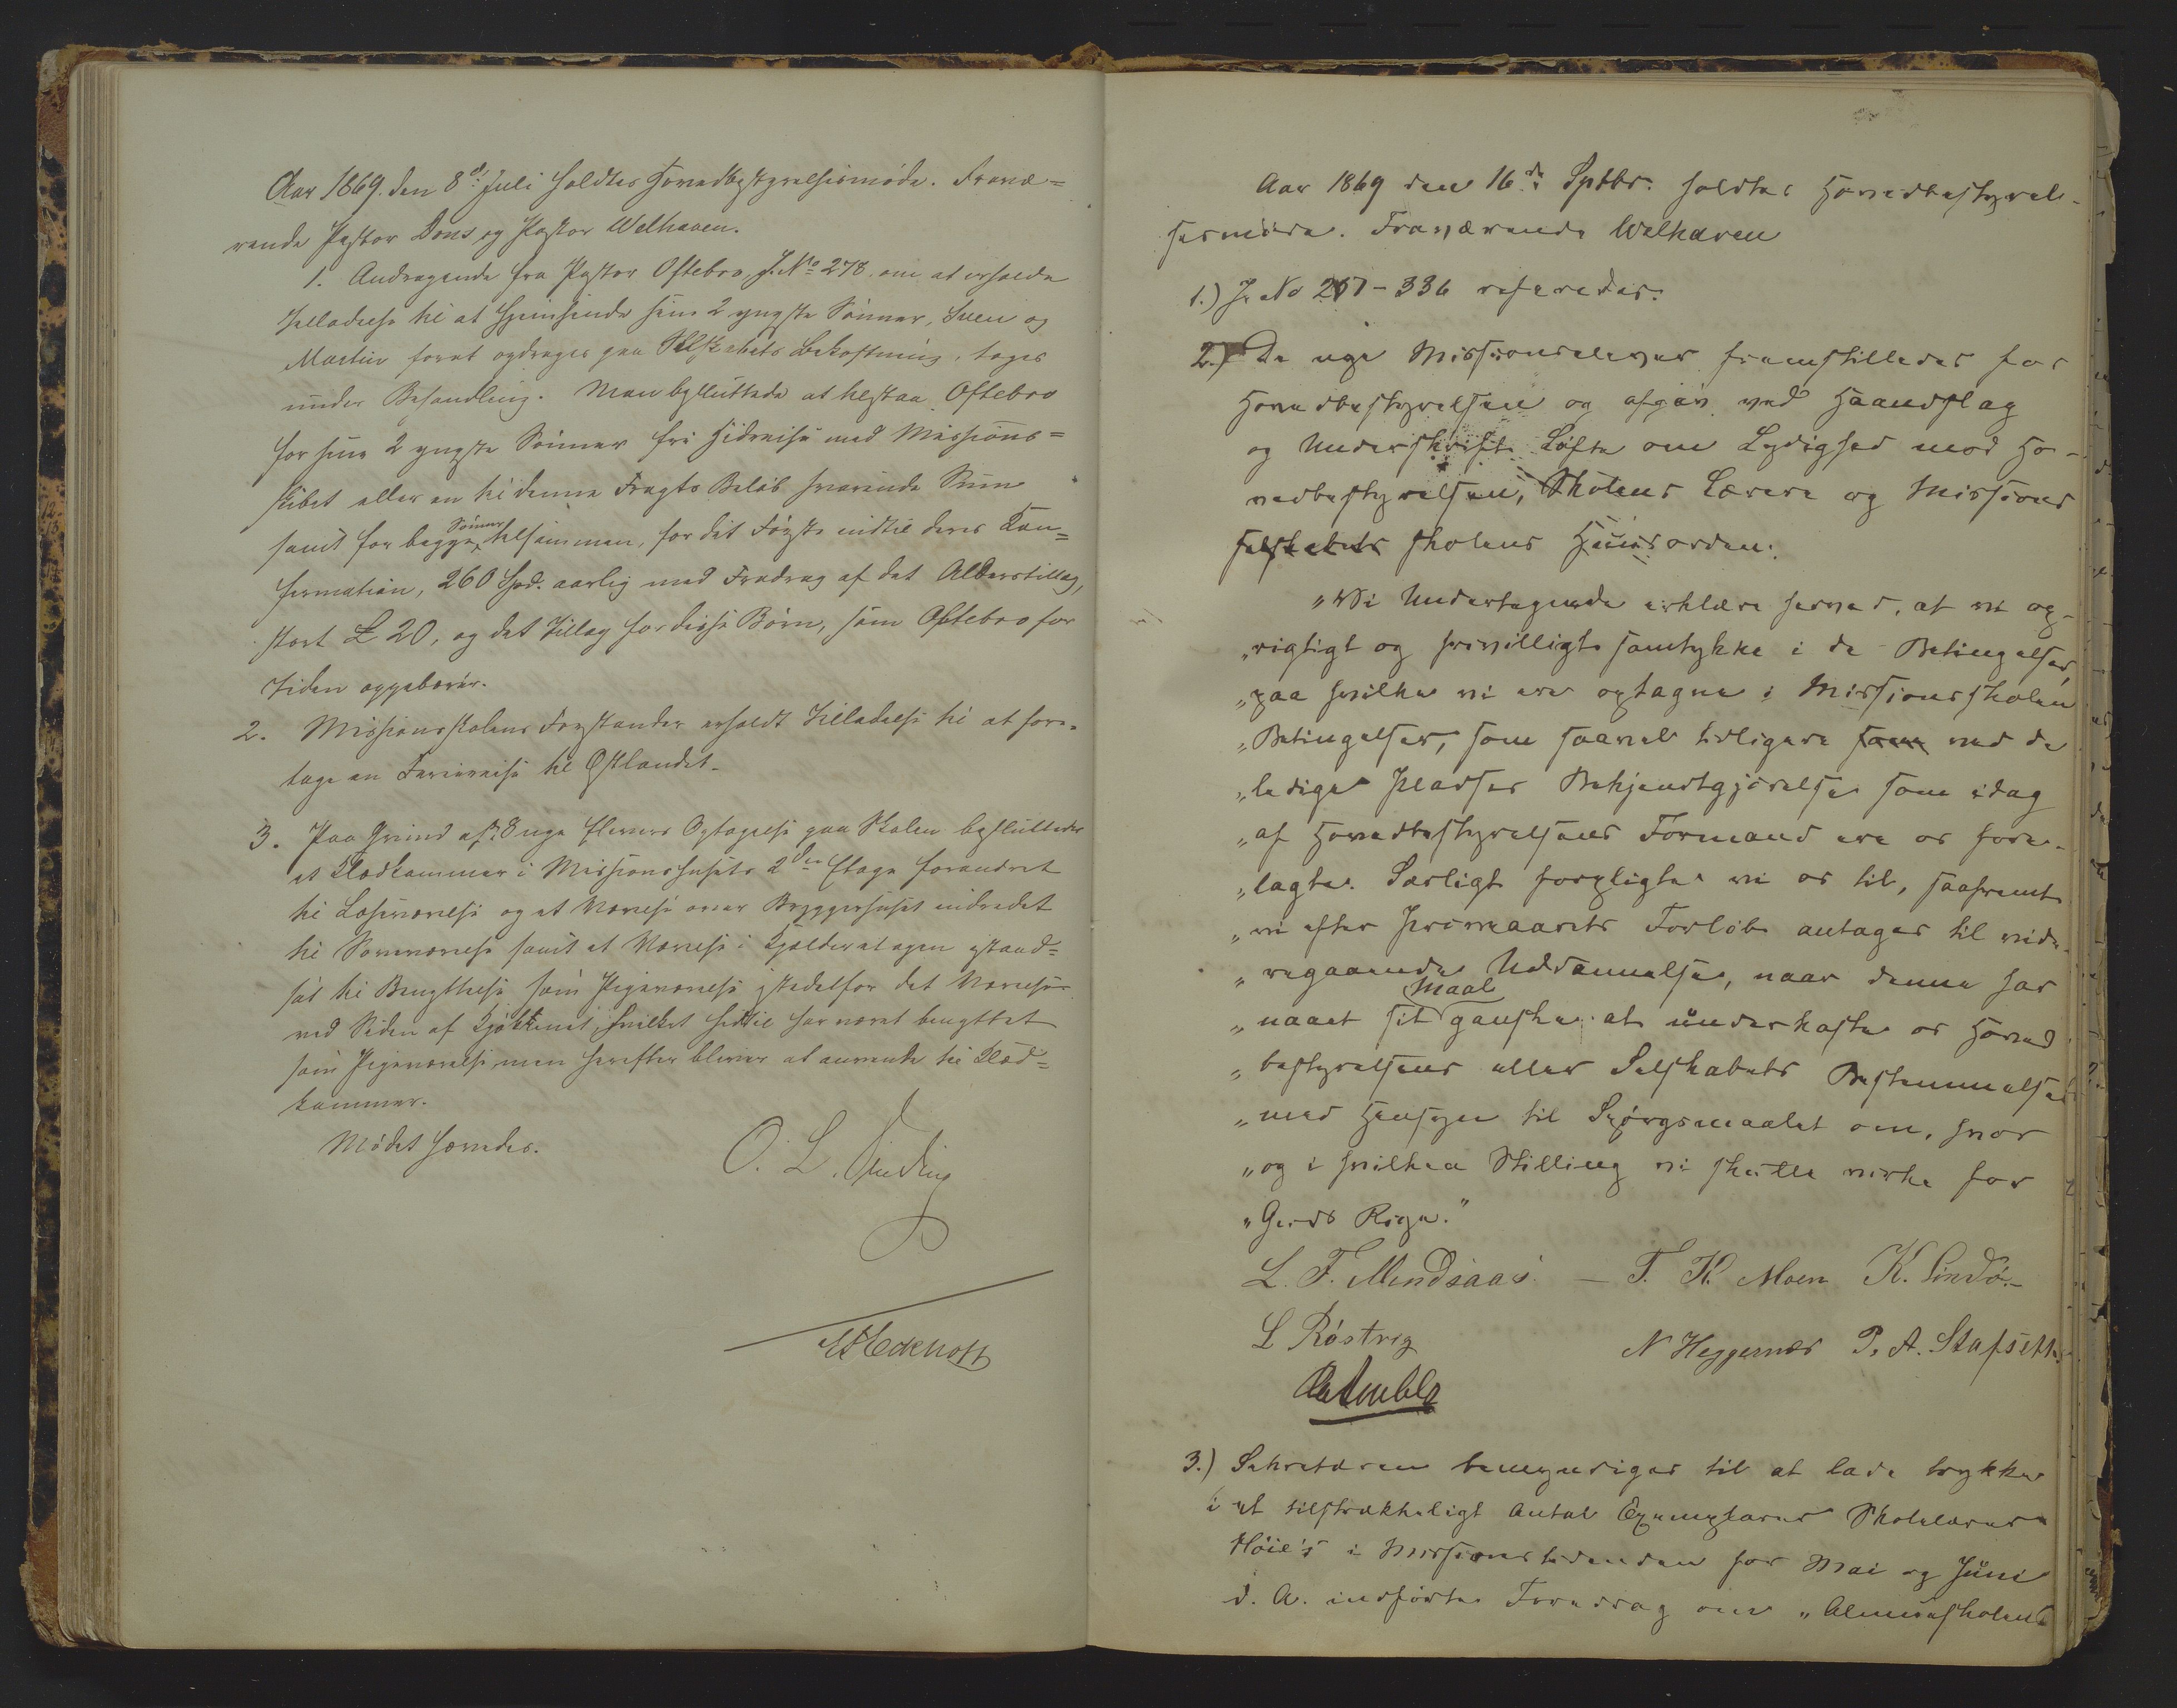 Aar 1869. den 8de Juli holdtes Hovedbestyrelsesmøde. Fravæ=
rende Pastor Dons og Pastor Welhaven.
1. Andragende fra Pastor Oftebro, J. No 278, om at erholde
Tilladelse til at hjemsende sine 2 yngste Sønner, Sven og
Martin forat opdrages paa Selskabets Bekostning, toges
under Behandling. Man besluttede at tilstaa Oftebro
for sine 2 yngste Sønner fri Hidreise med Missions=
skibet eller en til denne Fragts Beløb svarende Sum
samt for begge Sønner tilsammen, for det Første indtil deres Kon=
firmation, 260 Spd. aarlig med Fradrag af det Alderstillæg,
stort £ 20, og det Tillæg for disse Børn, som Oftebro for
Tiden oppebærer.
2. Missionsskolens Forstander erholdt Tilladelse til at fore=
tage en Feriereise til Østlandet.
3. Paa Grund af de 8 nye Elevers Optagelse paa Skolen besluttedes
et Klædkammer i Missionshusets 2den Etage forandret
til Læseværelse og et Værelse over Bryggerhuset indredet
til Soveværelse samt et Værelse i Kjælderetagen istand=
sat til Benyttelse som Pigeværelse istedetfor det Værelse
ved Siden af Kjøkkenet, hvilket hidtil har været benyttet
som Pigeværelse men herefter bliver at anvende til Klæd=
kammer.
Mødet hævedes.
O. L. Sinding
Aar 1869 den 16de Sptbr. holdtes Hovedbestyrel-
sesmøde. Fraværende Welhaven
1.) J. No 267-336 refereredes.
2.) De nye Missionselever fremstilledes for
Hovedbestyrelsen og afgav ved Haandslag
og Underskrift Løfte om Lydighed mod Ho-
vedbestyrelsen, Skolens Lærere og Missions
selskabets skolens Huusorden:
"Vi Undertegnede erklære herved, at vi op-
"rigtigt og frivilligt samtykke i de Betingelser,
"paa hvilke vi ere optagne i Missionsskolen
"Betingelser, som saavel tidligere som ved de
"ledige Pladses Bekjendtgjørelse som idag
"af Hovedbestyrelsens Formand ere os fore-
"lagte. Særligt forpligte vi os til, saafremt
"vi efter Prøveaarets Forløb antages til vide-
"regaaende Uddannelse, naar denne har
"naaet sit Maal ganske at underkaste os Hoved
"bestyrelsens eller Selskabets Bestemmelse
"med Hensyn til Spørgsmaalet om, hvor
"og i hvilken Stilling vi skulle virke for
"Guds Rige."
L. F. Mendsaas. - T. K. Moen K. Lindø.-
L Røstvig N Heggernæs P. A. Stafseth.
3.) Sekretæren bemyndiges til at lade trykke
i et tilstrækkeligt Antal Exemplarer Skolelærer
Høie's i Missionstidenden for Mai og Juni
d. A. indførte Foredrag om "Almueskolens